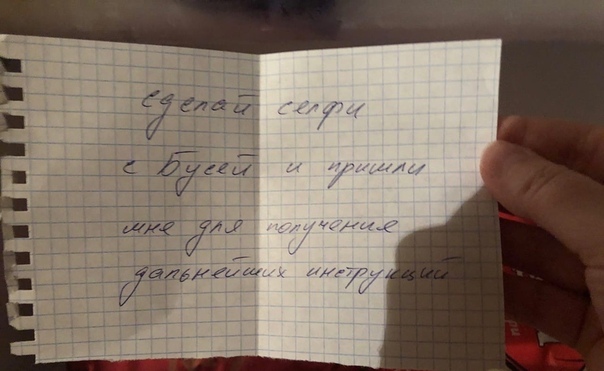 сделай селфи
с Бусей и пришли
мне для получения
дальнейших инструкций